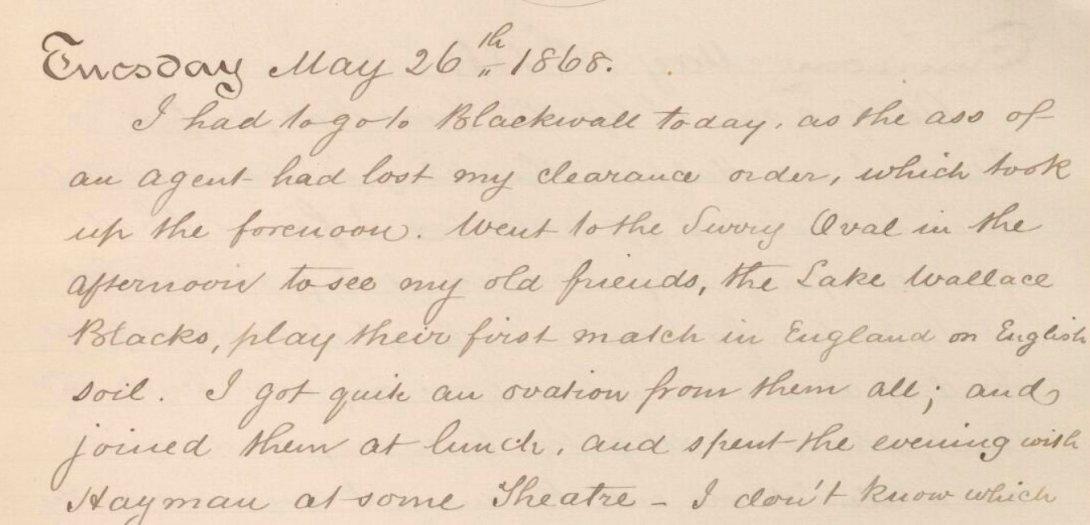 Tuesday May 26th 1868.
I had to go to Blackwall today, as the ass of
an agent had lost my clearance order, which took
up the forenoon. Went to the Surry Oval in the
afternoon to see my old friends, the Lake Wallace
Blacks, play their first match in England on English
soil. I got quite an ovation from them all; and
joined them at lunch, and spent the evening with
Hayman at some Theatre - I don't know which